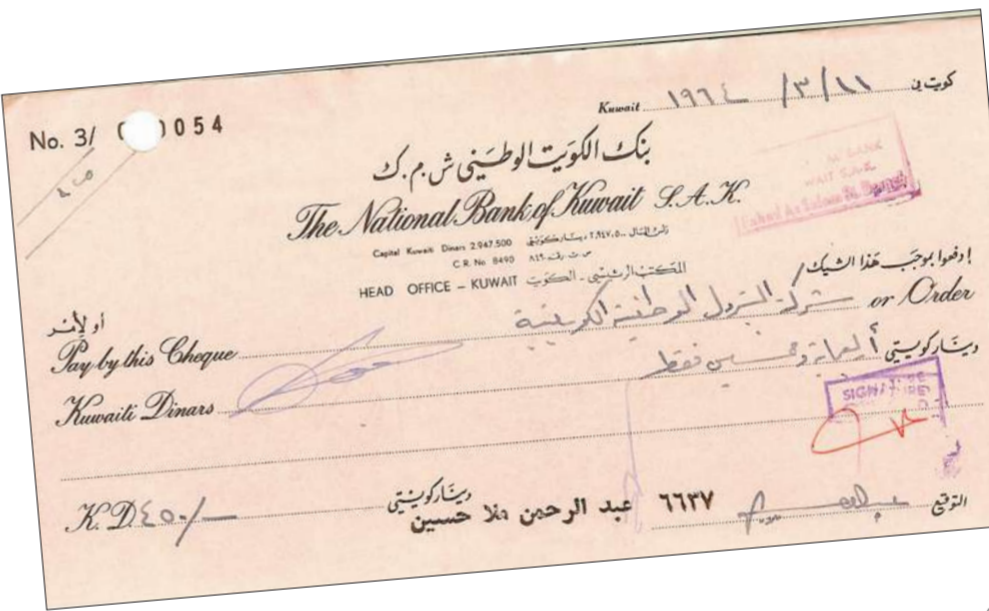 كويت في ١١/٣/١٩٦٤ Kuwait
No. 3/ 054
بنك الكويت الوطني ش.م.ك
The National Bank of Kuwait S.A.K.
Capital Kuwaiti Dinars 2.947.500 رأس المال ٢.٩٤٧.٥٠٠ دينار كويتي
C.R. No 8490 س.ت. رقم ٨٤٩٠
HEAD OFFICE – KUWAIT المكتب الرئيسي - الكويت
إدفعوا بموجب هذا الشيك / شركة البترول الوطنية الكويتية
أو لأمر
Pay by this Cheque or Order
دينار كويتي أربعمائة وخمسين فقط
Kuwaiti Dinars
SIGN
K.D. ٤٥٠/- دينار كويتي
عبد الرحمن ملا حسين ٦٦٣٧
التوقيع